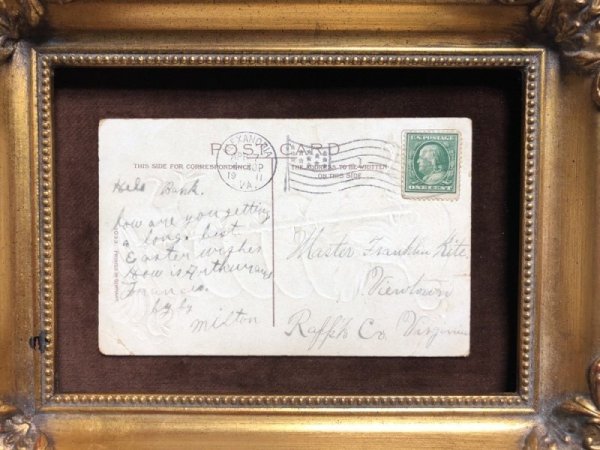 POST CARD
THIS SIDE FOR CORRESPONDENCE
THE ADDRESS TO BE WRITTEN
ON THIS SIDE
XANDRIA
19 11
VA.
U.S. POSTAGE
ONE CENT
Helo
how are you getting
a long. best
Easter wishes
How is Arthur and
Francis.
by by
Milton
Mister Franklin Kite.
Viewtown
Rapph Co. Virginia
Printed in Germany